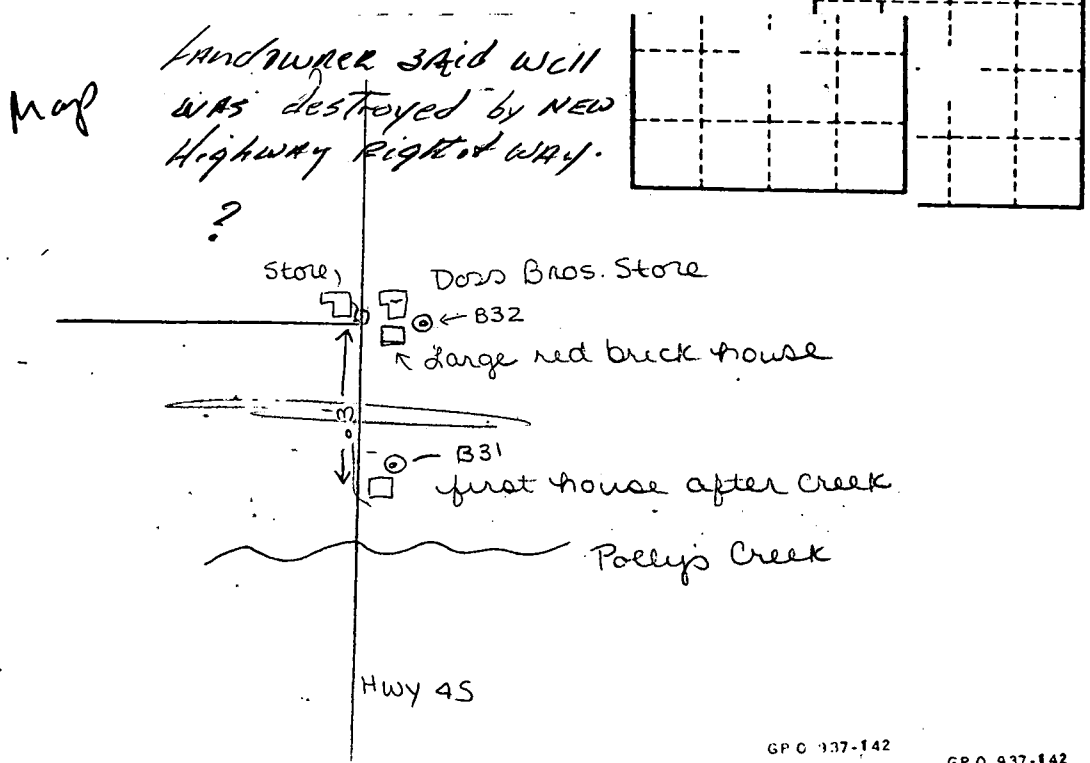 Map
Landowner said well
was destroyed by NEW
Highway Right of WAY.
?
Store,
Doss Bros. Store
B32
Large red brick house
.3
B31
first house after creek
Polly's Creek
HWY 45
GPO 937-142
GPO 937-142